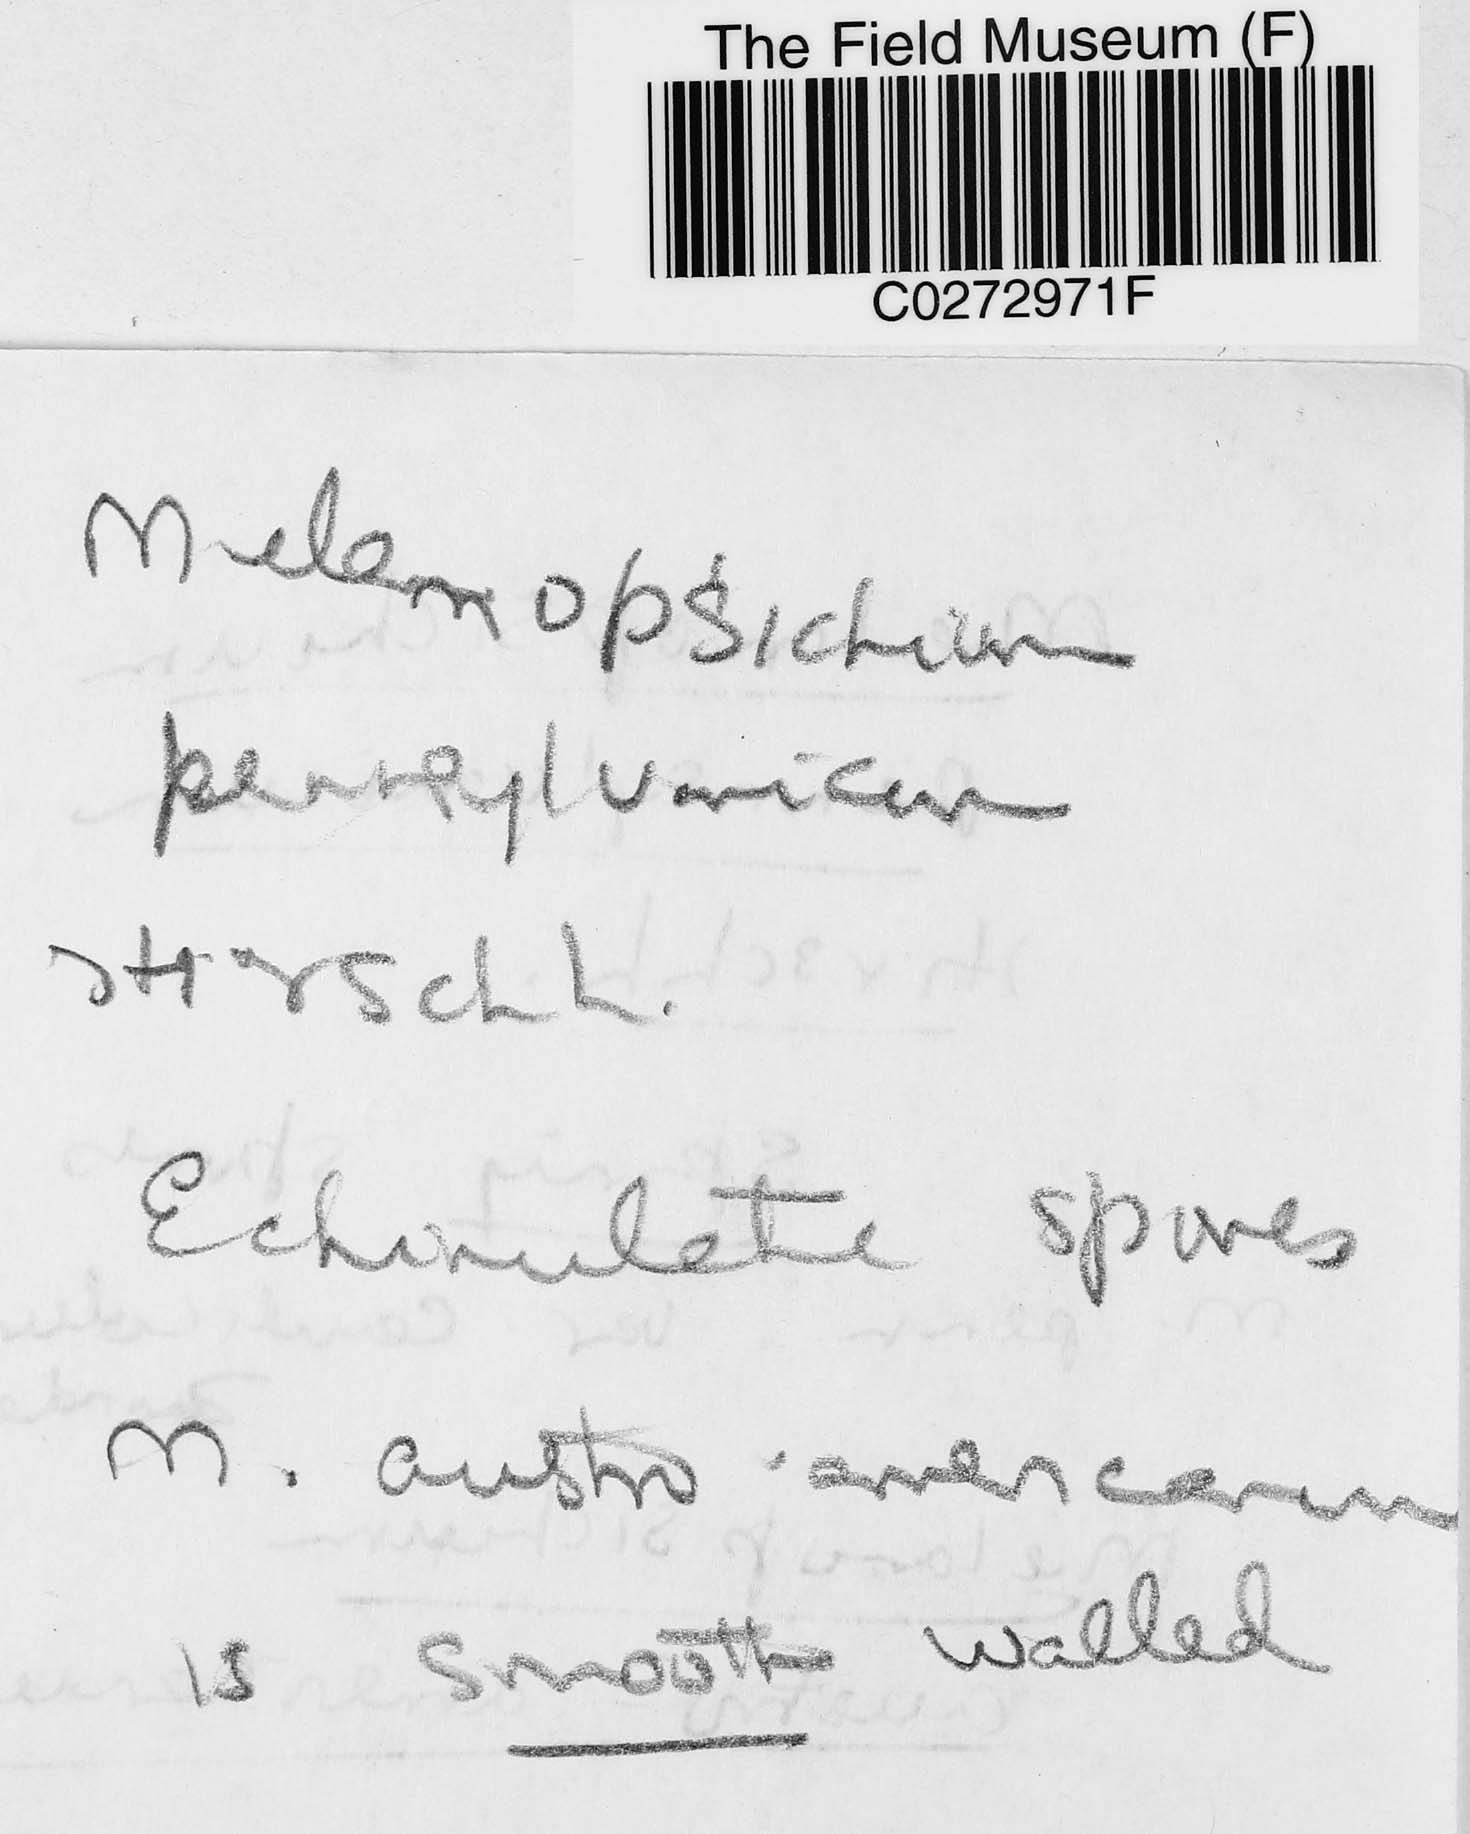 The Field Museum (F)
C0272971F
Melanopsichium
pennsylvanicum
Hirschh.
Echinulate spores
M. austro-americanum
is smooth walled